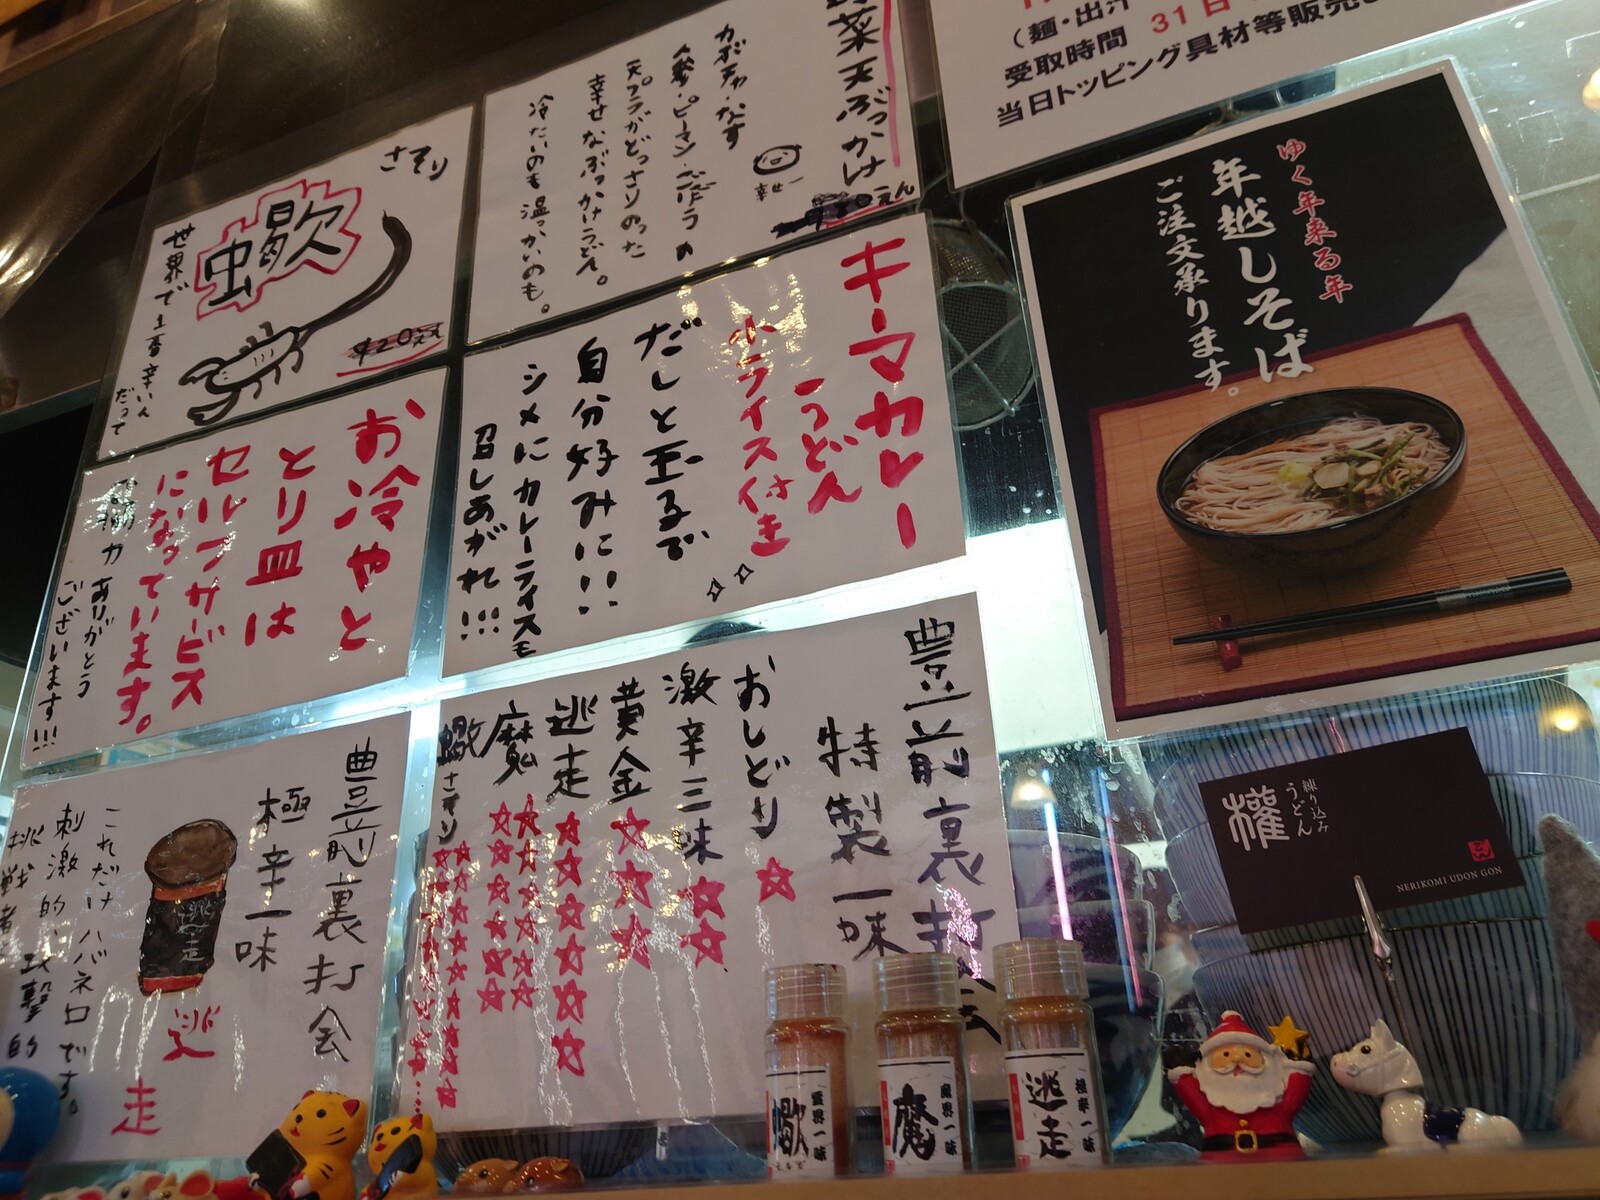 さそり
蠍
世界で1番辛いんだって
920えん
菜天ぶっかけ
えん
幸せ
カボチャ・なす
人参・ピーマン・ごぼうの
天プラがどっさりのった
幸せなぶっかけうどん。
冷たいのも温っかいのも。
キーマカレー
うどん
小ライス付き
だしと玉るで
自分好みに!!
シメにカレーライスも
召しあがれ!!!
お冷やと
とり皿は
セルフサービス
になっています。
ご協力ありがとう
ございます!!!
豊前裏打会
特製一味
おしどり ☆
激辛三味 ☆☆
黄金 ☆☆☆
逃走
魔
蠍さそり
豊前裏打会
極辛一味
逃走
逃走
これだけハバネロです。
刺激的、攻撃的
挑戦者
(麺・出汁
受取時間 31日
当日トッピング具材等販売
ゆく年来る年
年越しそば
ご注文承ります。
練り込み
うどん
權
NERIKOMI UDON GON
蠍
霊界一味
魔
魔界一味
逃走
極辛一味